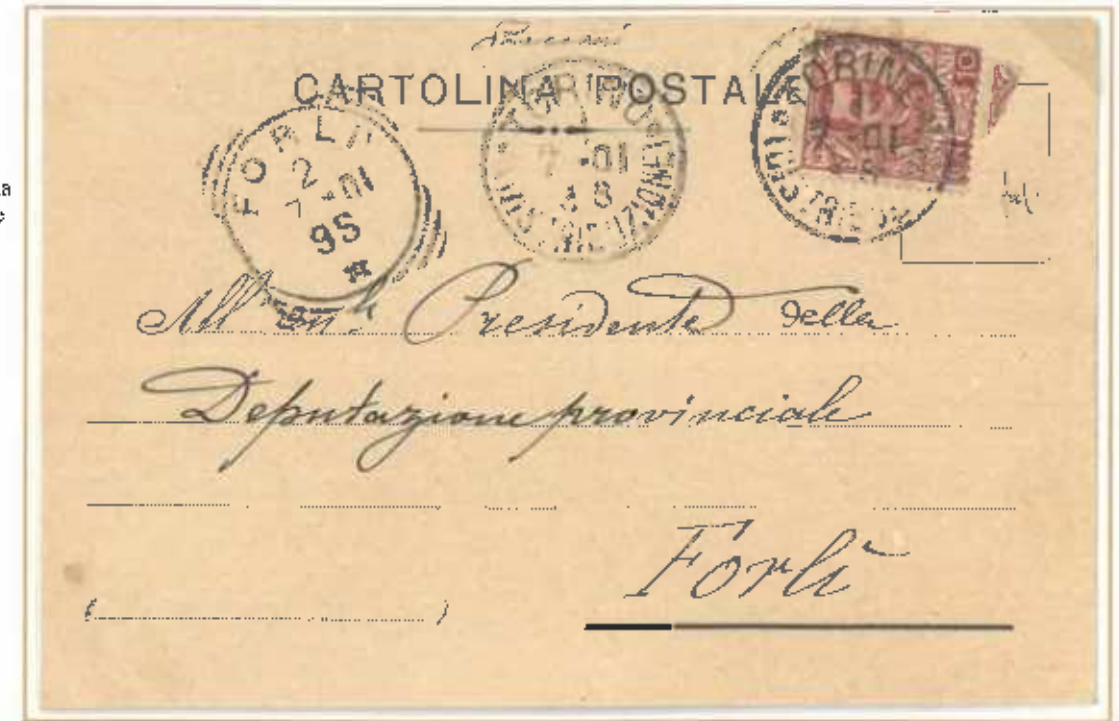 CARTOLINA POSTALE
FORLI
2
7-01
9S
TORINO
7 -01
8 S
TORINO
All' On. Presidente della
Deputazione provinciale
Forlì